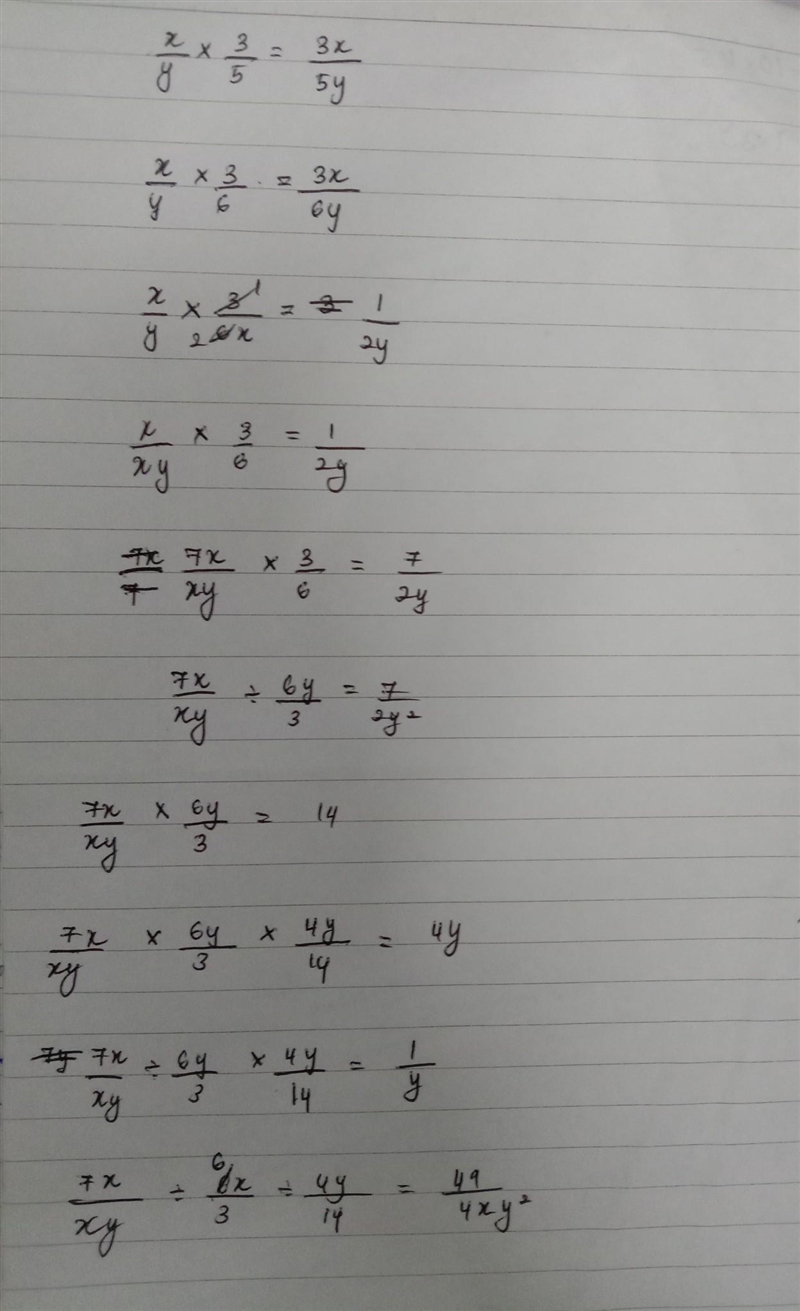 x/y × 3/5 = 3x/5y
x/y × 3/6 = 3x/6y
x/y × 3 1/2 6x = 3 1/2y
x/xy × 3/6 = 1/2y
7x/7 7x/xy × 3/6 = 7/2y
7x/xy ÷ 6y/3 = 7/2y²
7x/xy × 6y/3 = 14
7x/xy × 6y/3 × 4y/14 = 4y
7y 7x/xy ÷ 6y/3 × 4y/14 = 1/y
7x/xy ÷ 6x/3 ÷ 4y/14 = 49/4xy²